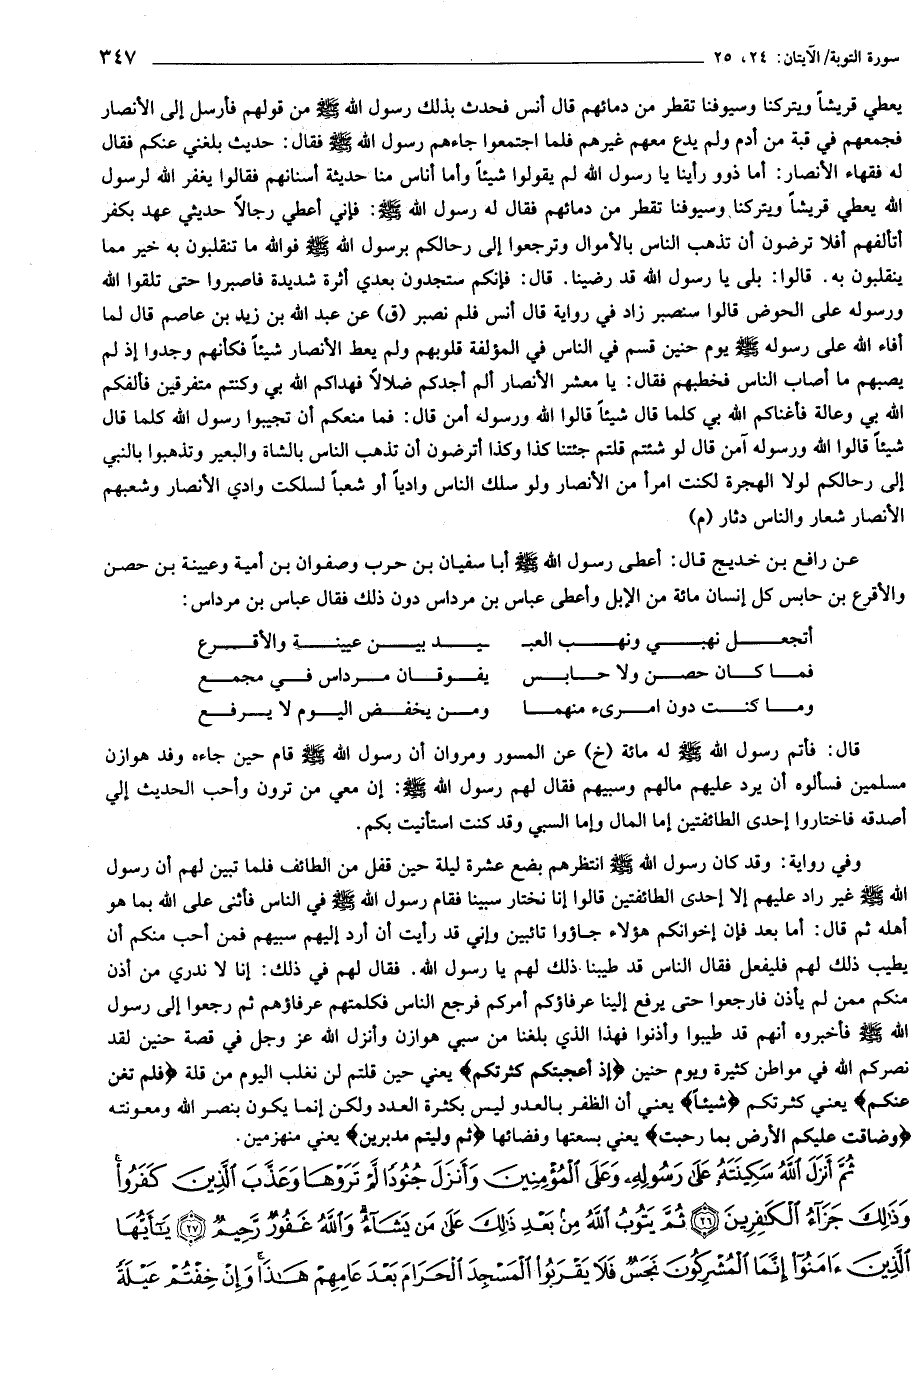 سورة التوبة/ الآيتان: ٢٤، ٢٥ ٣٤٧
يعطي قريشاً ويتركنا وسيوفنا تقطر من دمائهم قال أنس فحدث بذلك رسول الله ﷺ من قولهم فأرسل إلى الأنصار
فجمعهم في قبة من أدم ولم يدع معهم غيرهم فلما اجتمعوا جاءهم رسول الله ﷺ فقال: حديث بلغني عنكم فقال
له فقهاء الأنصار: أما ذوو رأينا يا رسول الله لم يقولوا شيئاً وأما أناس منا حديثة أسنانهم فقالوا يغفر الله لرسول
الله يعطي قريشاً ويتركنا وسيوفنا تقطر من دمائهم فقال له رسول الله ﷺ: فإني أعطي رجالاً حديثي عهد بكفر
أتألفهم أفلا ترضون أن تذهب الناس بالأموال وترجعوا إلى رحالكم برسول الله ﷺ فوالله ما تنقلبون به خير مما
ينقلبون به. قالوا: بلى يا رسول الله قد رضينا. قال: فإنكم ستجدون بعدي أثرة شديدة فاصبروا حتى تلقوا الله
ورسوله على الحوض قالوا سنصبر زاد في رواية قال أنس فلم نصبر (ق) عن عبد الله بن زيد بن عاصم قال لما
أفاء الله على رسوله ﷺ يوم حنين قسم في الناس في المؤلفة قلوبهم ولم يعط الأنصار شيئاً فكأنهم وجدوا إذ لم
يصبهم ما أصاب الناس فخطبهم فقال: يا معشر الأنصار ألم أجدكم ضلالاً فهداكم الله بي وكنتم متفرقين فألفكم
الله بي وعالة فأغناكم الله بي كلما قال شيئاً قالوا الله ورسوله أمن قال: فما منعكم أن تجيبوا رسول الله كلما قال
شيئاً قالوا الله ورسوله آمن قال لو شئتم قلتم جئتنا كذا وكذا أترضون أن تذهب الناس بالشاة والبعير وتذهبوا بالنبي
إلى رحالكم لولا الهجرة لكنت امرأ من الأنصار ولو سلك الناس وادياً أو شعباً لسلكت وادي الأنصار وشعبهم
الأنصار شعار والناس دثار (م)
عن رافع بن خديج قال: أعطى رسول الله ﷺ أبا سفيان بن حرب وصفوان بن أمية وعيينة بن حصن
والأقرع بن حابس كل إنسان مائة من الإبل وأعطى عباس بن مرداس دون ذلك فقال عباس بن مرداس:
أتجعل نهبي ونهب العبـ ـيد بين عيينة والأقرع
فما كان حصن ولا حابس يفوقان مرداس في مجمع
وما كنت دون امرىء منهما ومن يخفض اليوم لا يرفع
قال: فأتم رسول الله ﷺ له مائة (خ) عن المسور ومروان أن رسول الله ﷺ قام حين جاءه وفد هوازن
مسلمين فسألوه أن يرد عليهم مالهم وسبيهم فقال لهم رسول الله ﷺ: إن معي من ترون وأحب الحديث إلي
أصدقه فاختاروا إحدى الطائفتين إما المال وإما السبي وقد كنت استأنيت بكم.
وفي رواية: وقد كان رسول الله ﷺ انتظرهم بضع عشرة ليلة حين قفل من الطائف فلما تبين لهم أن رسول
الله ﷺ غير راد عليهم إلا إحدى الطائفتين قالوا إنا نختار سبينا فقام رسول الله ﷺ في الناس فأثنى على الله بما هو
أهله ثم قال: أما بعد فإن إخوانكم هؤلاء جاؤوا تائبين وإني قد رأيت أن أرد إليهم سبيهم فمن أحب منكم أن
يطيب ذلك لهم فليفعل فقال الناس قد طيبنا ذلك لهم يا رسول الله. فقال لهم في ذلك: إنا لا ندري من أذن
منكم ممن لم يأذن فارجعوا حتى يرفع إلينا عرفاؤكم أمركم فرجع الناس فكلمتهم عرفاؤهم ثم رجعوا إلى رسول
الله ﷺ فأخبروه أنهم قد طيبوا وأذنوا فهذا الذي بلغنا من سبي هوازن وأنزل الله عز وجل في قصة حنين لقد
نصركم الله في مواطن كثيرة ويوم حنين ﴿إذ أعجبتكم كثرتكم﴾ يعني حين قلتم لن نغلب اليوم من قلة ﴿فلم تغن
عنكم﴾ يعني كثرتكم ﴿شيئاً﴾ يعني أن الظفر بالعدو ليس بكثرة العدد ولكن إنما يكون بنصر الله ومعونته
﴿وضاقت عليكم الأرض بما رحبت﴾ يعني بسعتها وفضائها ﴿ثم وليتم مدبرين﴾ يعني منهزمين.
ثُمَّ أَنزَلَ ٱللَّهُ سَكِينَتَهُ عَلَىٰ رَسُولِهِۦ وَعَلَى ٱلْمُؤْمِنِينَ وَأَنزَلَ جُنُودًا لَّمْ تَرَوْهَا وَعَذَّبَ ٱلَّذِينَ كَفَرُوا۟ ۚ
وَذَٰلِكَ جَزَآءُ ٱلْكَٰفِرِينَ ﴿٢٦﴾ ثُمَّ يَتُوبُ ٱللَّهُ مِنۢ بَعْدِ ذَٰلِكَ عَلَىٰ مَن يَشَآءُ ۗ وَٱللَّهُ غَفُورٌ رَّحِيمٌ ﴿٢٧﴾ يَٰٓأَيُّهَا
ٱلَّذِينَ ءَامَنُوٓا۟ إِنَّمَا ٱلْمُشْرِكُونَ نَجَسٌ فَلَا يَقْرَبُوا۟ ٱلْمَسْجِدَ ٱلْحَرَامَ بَعْدَ عَامِهِمْ هَٰذَا ۚ وَإِنْ خِفْتُمْ عَيْلَةً